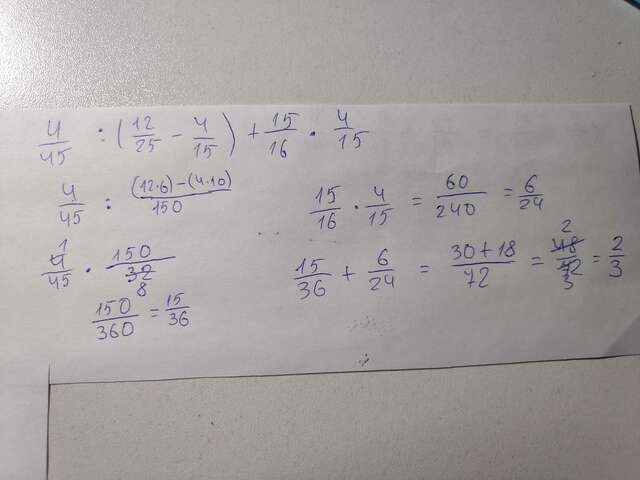 4/45 : (12/25 - 4/15) + 15/16 · 4/15
4/45 : (12·6)-(4·10)/150
15/16 · 4/15 = 60/240 = 6/24
1
4/45 · 150/32
8
150/360 = 15/36
2
15/36 + 6/24 = 30+18/72 = 48/72 = 2/3
3